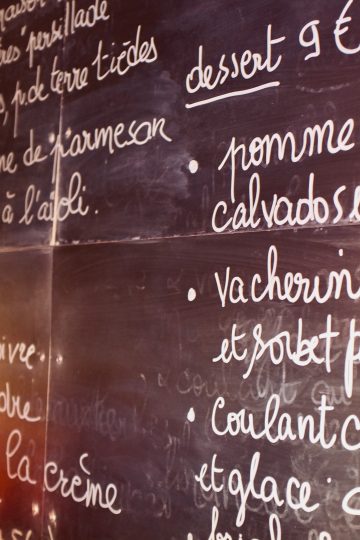 persillade
s, p. de terre tièdes
ne de parmesan
à l'aïoli.
ivre
dre
la crème
dessert 9 €
• pomme
calvados
• Vacherin
et sorbet p
• Coulant c
et glace